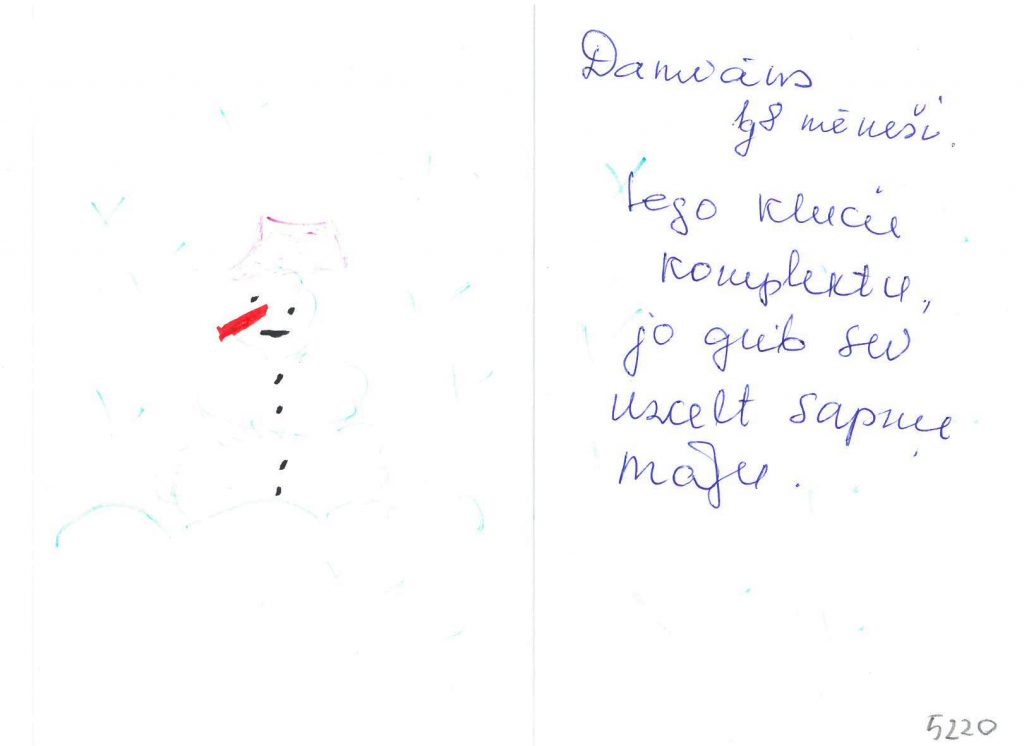 Damiāns
1g 8 mēneši.
Lego kluču
komplektu,
jo grib sev
uzcelt sapņu
māju.
5220